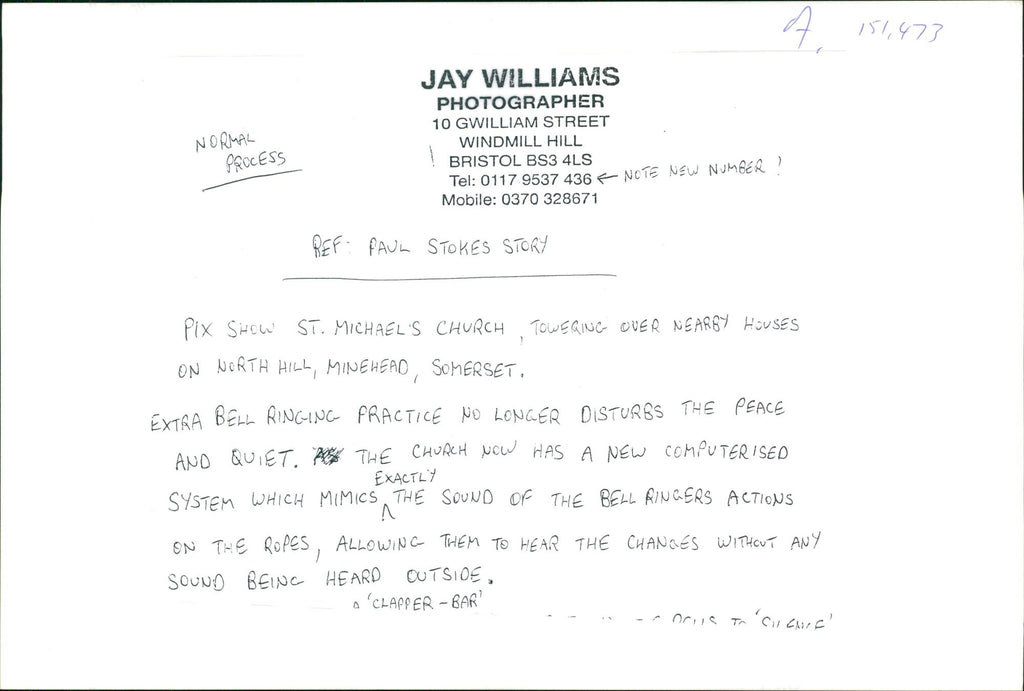 A. 151,473
JAY WILLIAMS
PHOTOGRAPHER
10 GWILLIAM STREET
WINDMILL HILL
BRISTOL BS3 4LS
Tel: 0117 9537 436 ← NOTE NEW NUMBER !
Mobile: 0370 328671
NORMAL
PROCESS
!
REF: PAUL STOKES STORY
PIX SHOW ST. MICHAEL'S CHURCH, TOWERING OVER NEARBY HOUSES
ON NORTH HILL, MINEHEAD, SOMERSET.
EXTRA BELL RINGING PRACTICE NO LONGER DISTURBS THE PEACE
AND QUIET. THE CHURCH NOW HAS A NEW COMPUTERISED
EXACTLY
SYSTEM WHICH MIMICS THE SOUND OF THE BELL RINGERS ACTIONS
ON THE ROPES, ALLOWING THEM TO HEAR THE CHANGES WITHOUT ANY
SOUND BEING HEARD OUTSIDE.
A 'CLAPPER-BAR'
TO 'SILENCE'